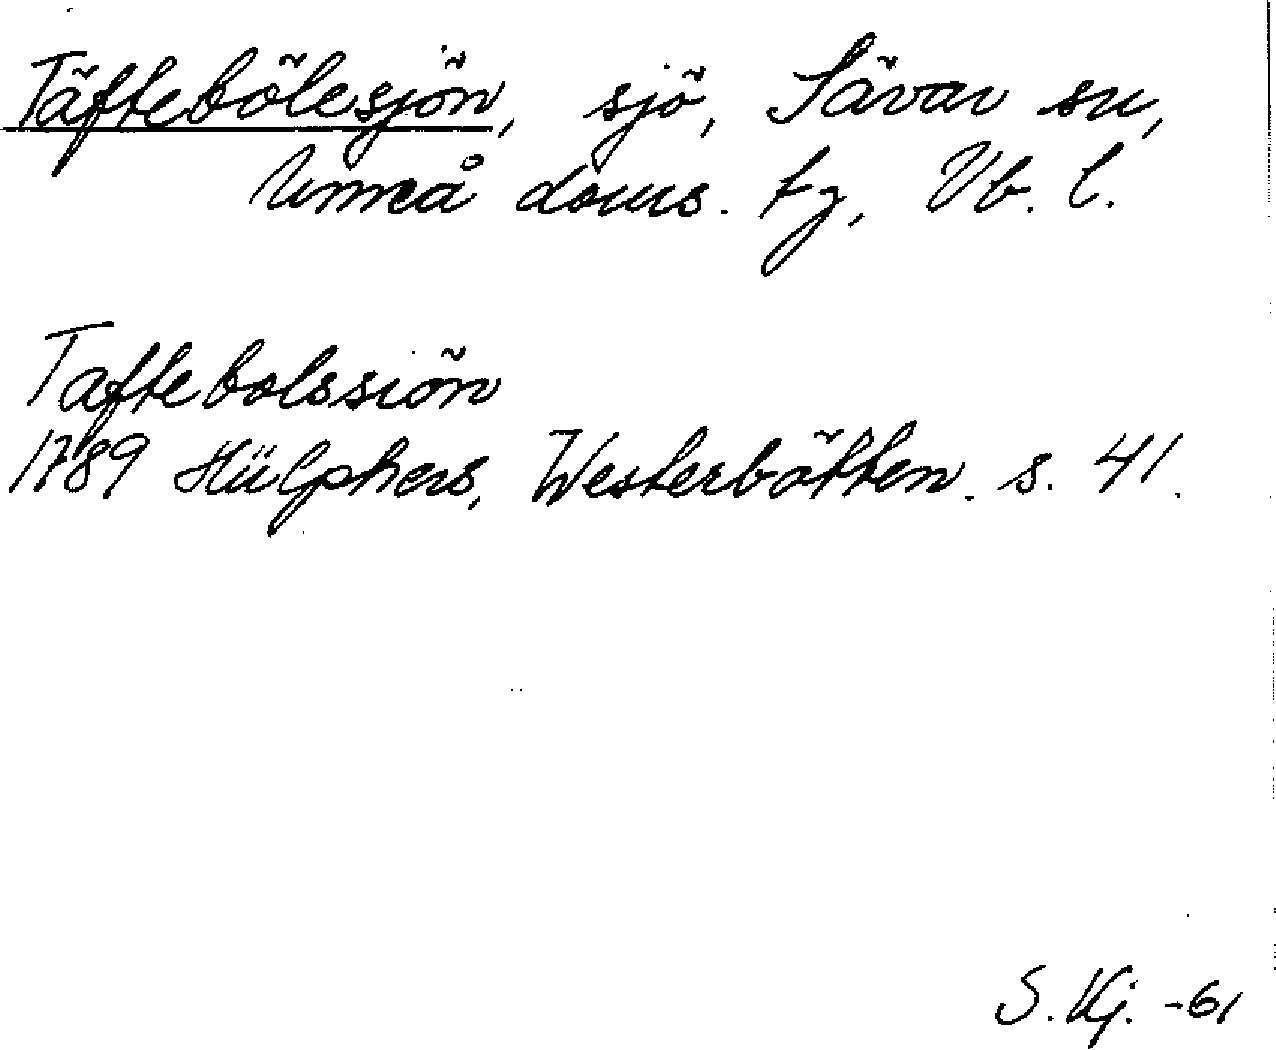 Täftebölesjön, sjö, Sävar sn,
Umeå doms. tg, Vb. l.
Taftebolssiön
1789 Hülphers, Westerbotten. s. 41.
S. Kj. -61